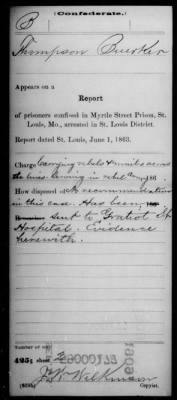 (Confederate.)
B
Thompson
Appears on a
Report
of prisoners confined in Myrtle Street Prison, St.
Louis, Mo., arrested in St. Louis District.
Report dated St. Louis, June 1, 1863.
Charge Carrying rebels & mails across
the lines. Serving in rebel Army 186 .
How disposed of No recommendation
in this case. Has been 186
sent to Gratiot St
Hospital. Evidence
herewith.
Number of roll:
425; sheet 2
Copyist.